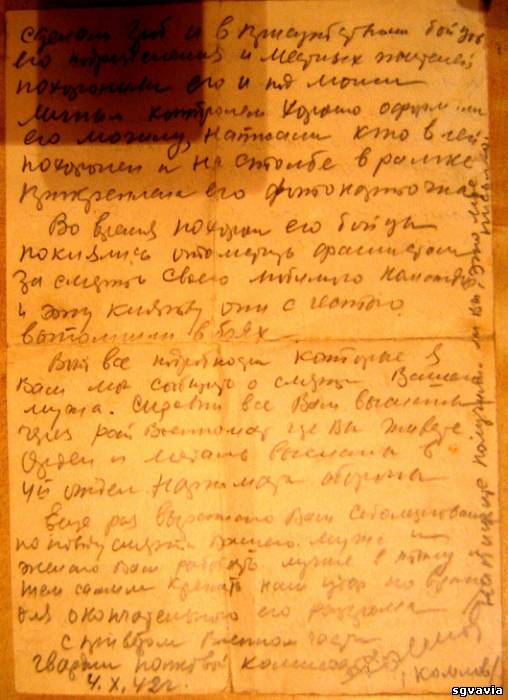 сделали гроб и в присутствии бойцов
его подразделения и местных жителей
похоронили его и под моим
личным контролем хорошо оформили
его могилу, написали кто в ней
похоронен и на столбе в рамке
прикрепили его фотокарточка
Во время похорон его бойцы
поклялись отомстить фашистам
за смерть своего любимого командира
и эту клятву они с честью
выполнили в боях.
Вот все подробности которые я
Вам мог сообщить о смерти Вашего
мужа. Справки все Вам высланы
через рай Военкомат где Вы живете
Орден и медаль высланы в
отдел Наркомата обороны
Еще раз выражаю Вам соболезнование
по поводу смерти Вашего мужа и
желаю Вам работать лучше в тылу
тем самым крепить наш удар по врагу
для окончательного его разгрома
с приветом Военком части
гвардии полковой комиссар
4.X.42г.
Напишите получили ли Вы это мое письмо
sgvavia